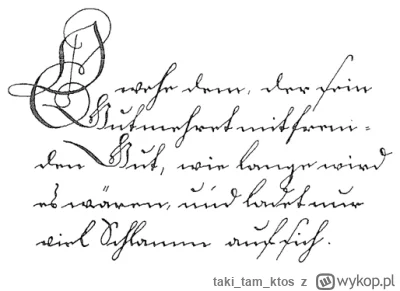 O wehe dem, der sein
Gut mehret mit frem-
den Gut, wie lange wird
es wären, und ladet nur
viel Schlamm auf sich.
taki_tam_ktos z wykop.pl